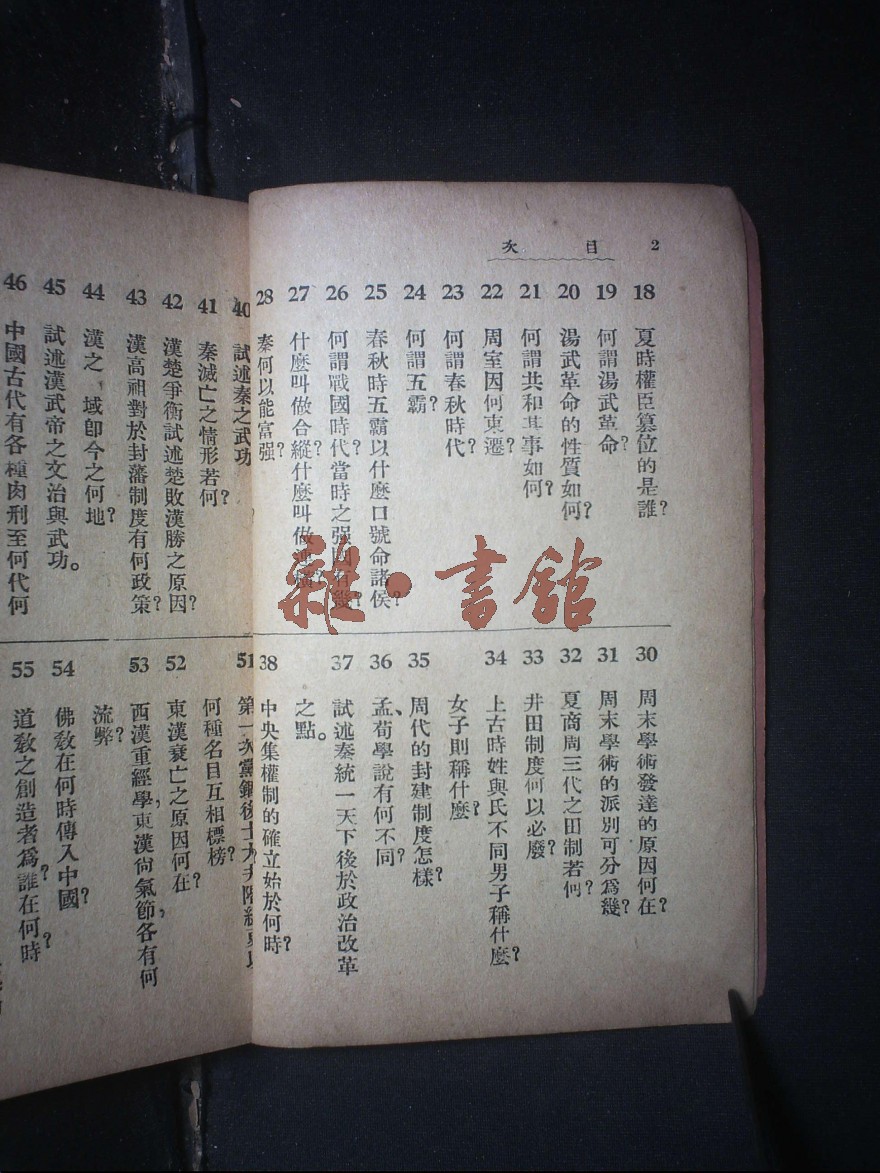 目次 2
18 夏時權臣篡位的是誰？
19 何謂湯武革命？
20 湯武革命的性質如何？
21 何謂共和其事如何？
22 周室因何東遷？
23 何謂春秋時代？
24 何謂五霸？
25 春秋時五霸以什麼口號命諸侯？
26 何謂戰國時代？當時之强國有幾？
27 什麼叫做合縱？什麼叫做
28 秦何以能富强？
30 周末學術發達的原因何在？
31 周末學術的派別可分爲幾？
32 夏商周三代之田制若何？
33 井田制度何以必廢？
34 上古時姓與氏不同男子稱什麼？
女子則稱什麼？
35 周代的封建制度怎樣？
36 孟、荀學說有何不同？
37 試述秦統一天下後於政治改革
之點。
38 中央集權制的確立始於何時？
40 試述秦之武功
41 秦滅亡之情形若何？
42 漢楚爭衡試述楚敗漢勝之原因？
43 漢高祖對於封藩制度有何政策？
44 漢之 域卽今之何地？
45 試述漢武帝之文治與武功。
46 中國古代有各種肉刑至何代何
51 第一次黨錮後士大夫
何種名目互相標榜？
52 東漢衰亡之原因何在？
53 西漢重經學，東漢尙氣節，各有何
流弊？
54 佛敎在何時傳入中國？
55 道敎之創造者爲誰？在何時？
雜·書館